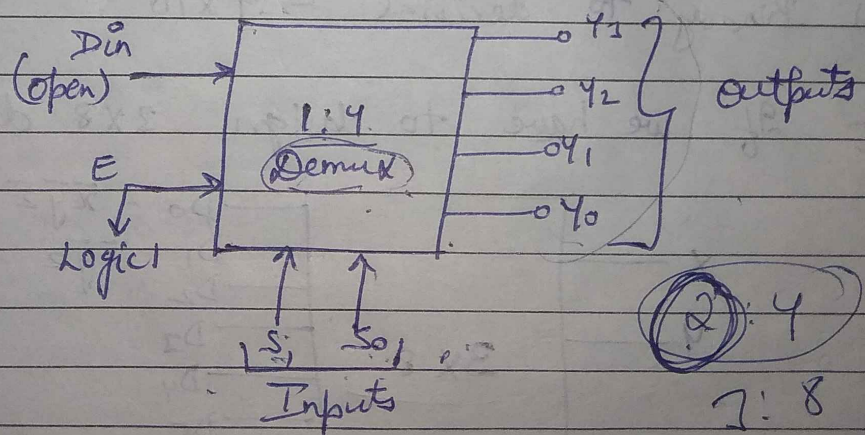 Din
(open)
E
Logic 1
1:4
Demux
Y3
Y2
Y1
Y0
outputs
S1 S0
Inputs
2:4
3:8